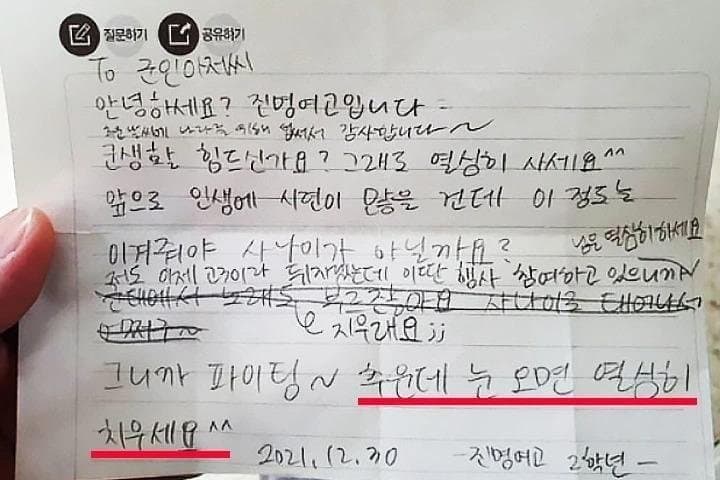 질문하기 공유하기
To 군인아저씨
안녕하세요? 진명여고입니다
추운 날씨에 나라를 위해 힘써서 감사합니다~
군생활 힘드신가요? 그래도 열심히 사세요^^
앞으로 인생에 시련이 많을 건데 이 정도는
이겨줘야 사나이가 아닐까요?
저도 이제 고3이라 뒤지겠는데 이딴 행사 참여하고 있으니까~
눈은 열심히 하세요
군대에서 노래도 부르잖아요 사나이로 태어나서
어쩌구~
지우래요;;
그니까 파이팅~ 추운데 눈 오면 열심히
치우세요^^
2021.12.30 -진명여고 2학년-